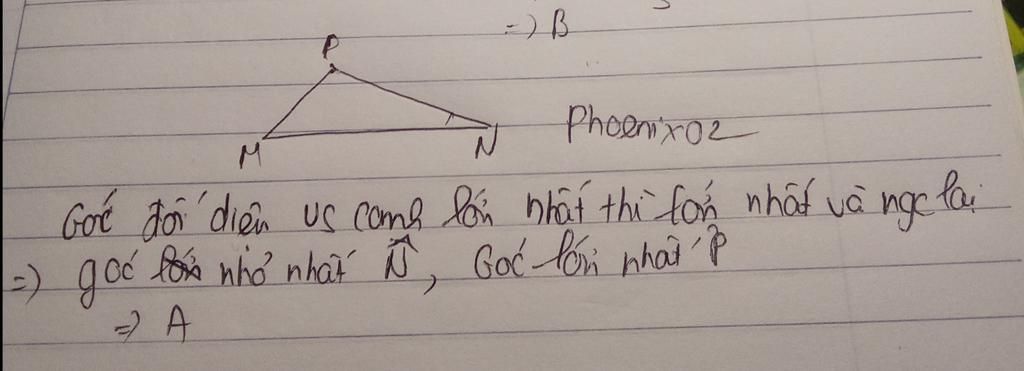 =) B
P
M
N
Phoenix02
Goć đối diện vs cạnh lớn nhất thì lớn nhất và ngc lại
=) goć nhỏ nhất N̂, Goć lớn nhất P̂
=) A